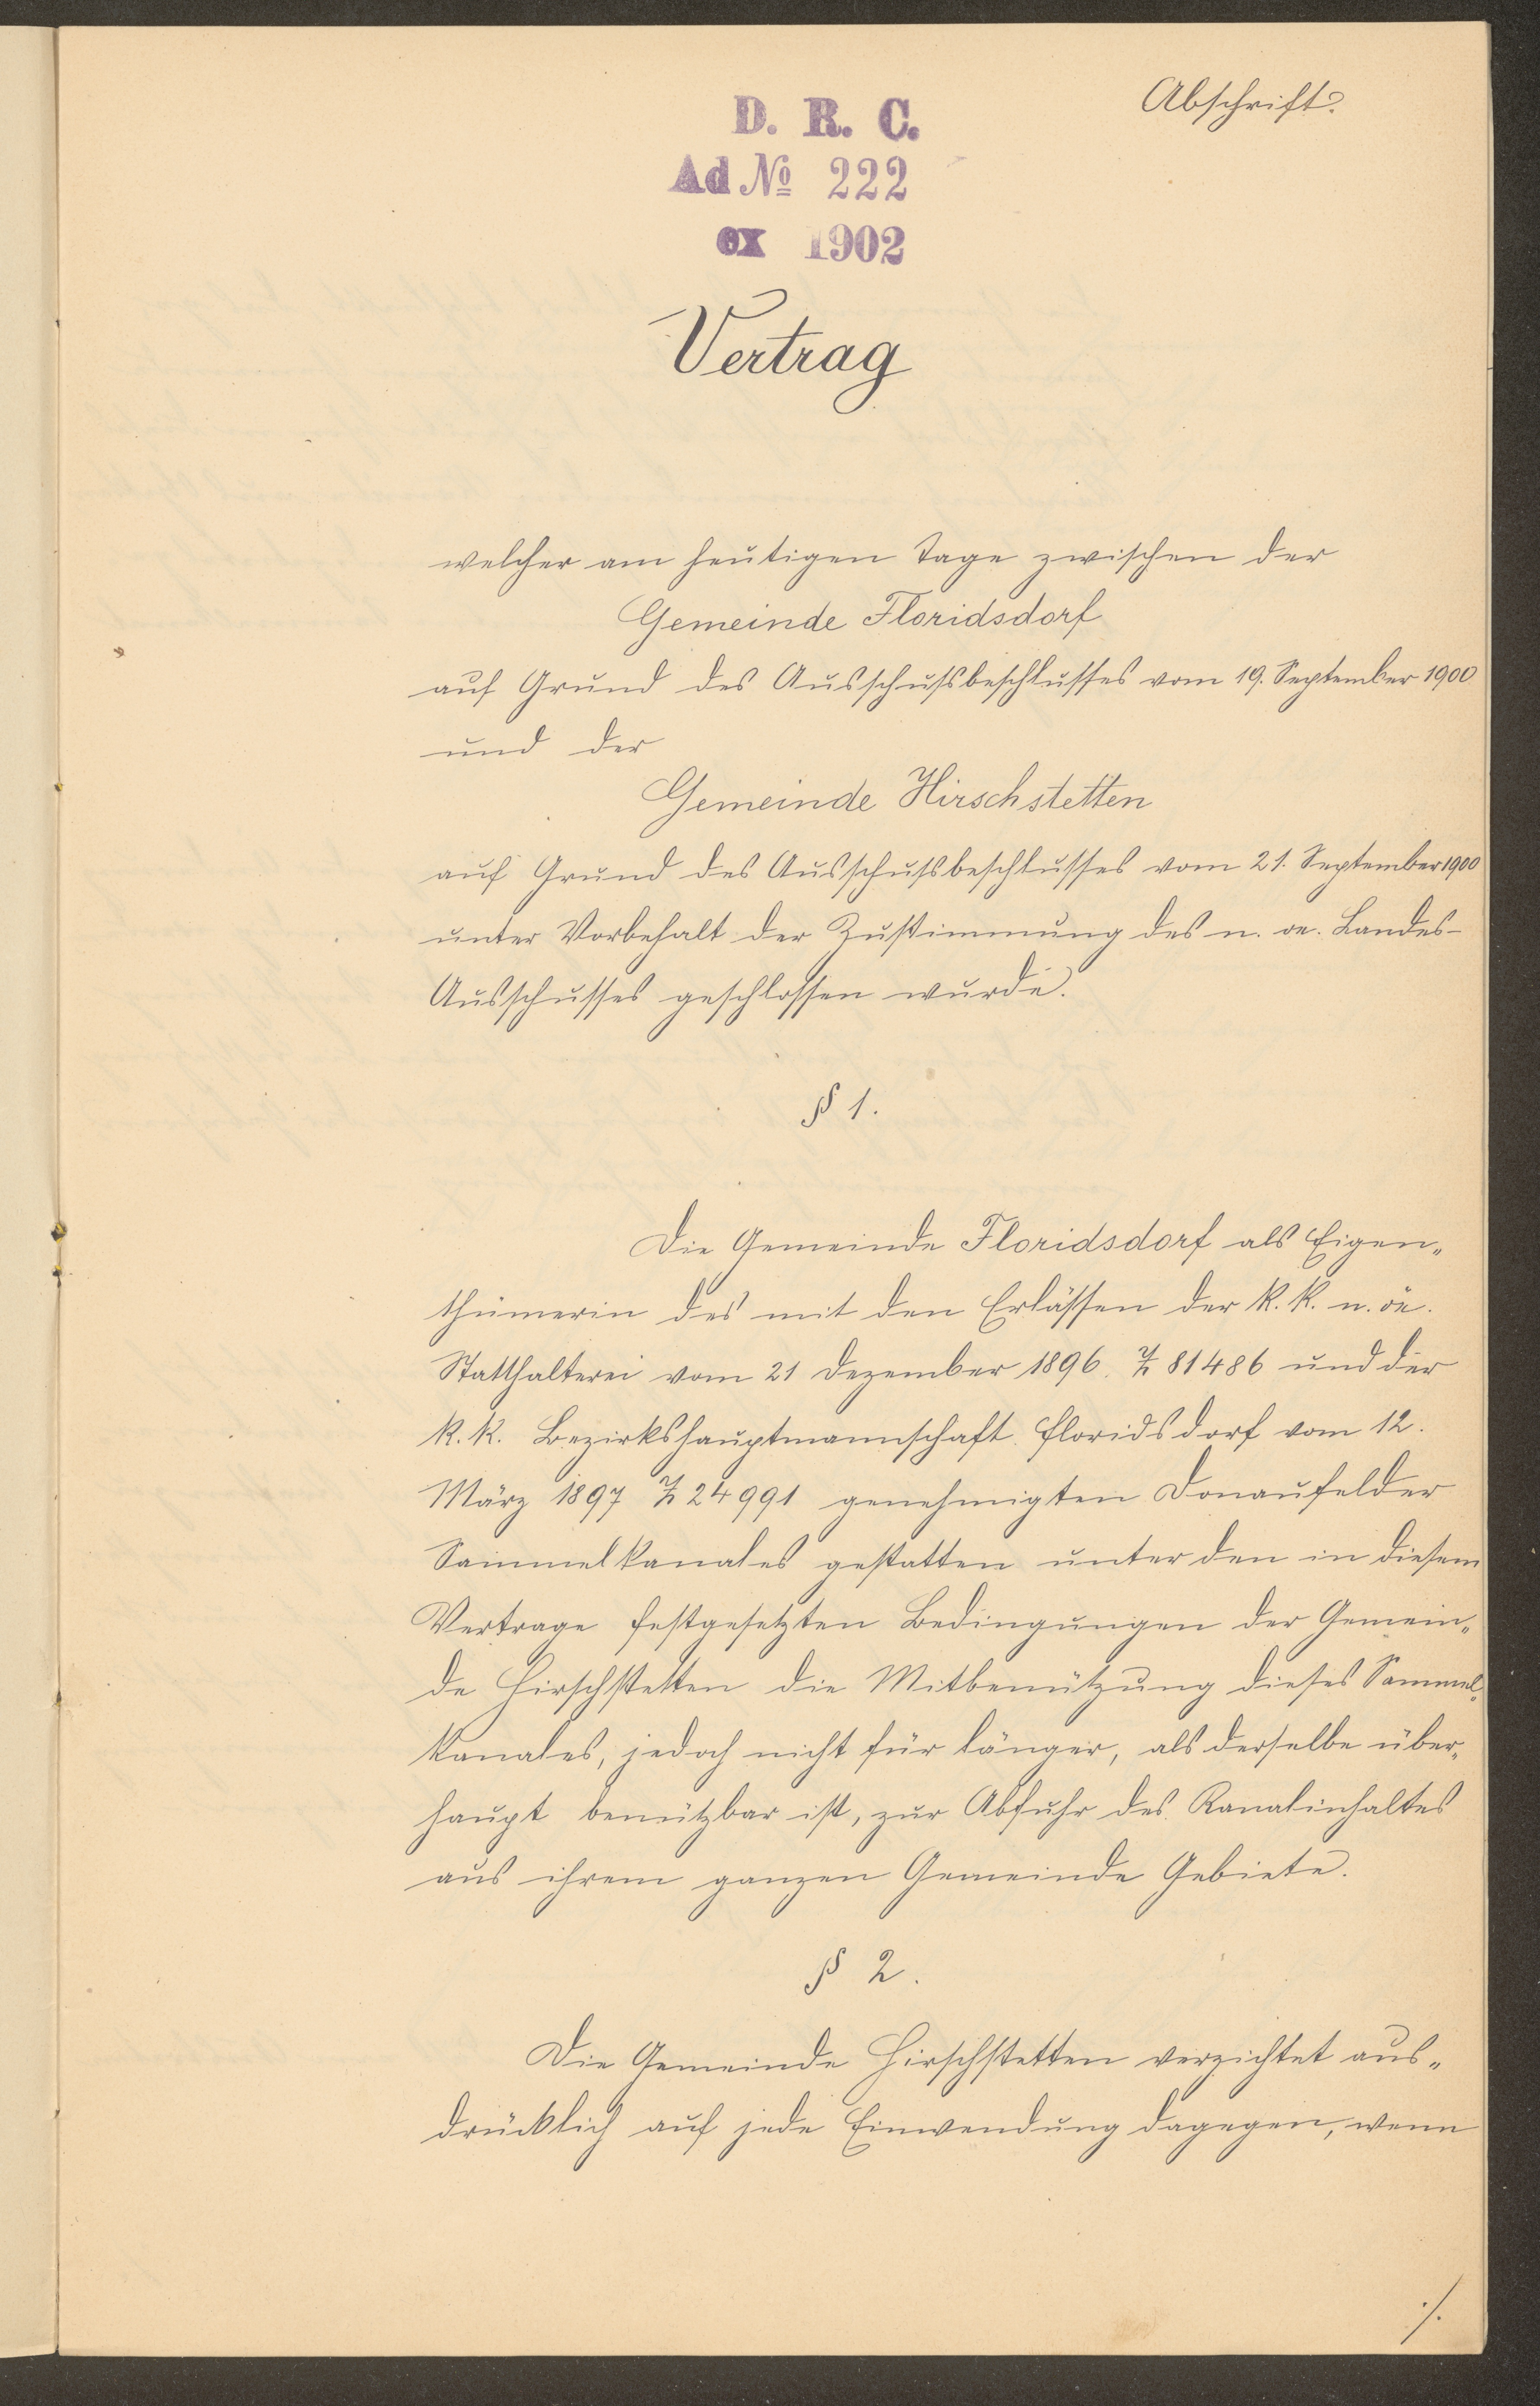 Abschrift.
D. R. C.
Ad № 222
ex 1902
Vertrag
welcher am heutigen Tage zwischen der
Gemeinde Floridsdorf
auf Grund des Ausschußbeschlusses vom 19. September 1900
und der
Gemeinde Hirschstetten
auf Grund des Ausschußbeschlusses vom 21. September 1900
unter Vorbehalt der Zustimmung des n. oe. Landes-
Ausschusses geschlossen wurde.
§ 1.
Die Gemeinde Floridsdorf als Eigen„
thümerin des mit den Erlässen der k. k. n. ö.
Statthalterei vom 21 Dezember 1896. Z 81486 und der
k. k. Bezirkshauptmannschaft Floridsdorf vom 12.
März 1897 Z 24991 genehmigten Donaufelder
Sammelkanales gestatten unter den in diesem
Vertrage festgesetzten Bedingungen der Gemein„
de Hirschstetten die Mitbenützung dieses Sammel„
kanales, jedoch nicht für länger, als derselbe über„
haupt benützbar ist, zur Abfuhr des Kanalinhaltes
aus ihrem ganzen Gemeinde Gebiete.
§ 2.
Die Gemeinde Hirschstetten verzichtet aus„
drücklich auf jede Einwendung dagegen, wenn
./.